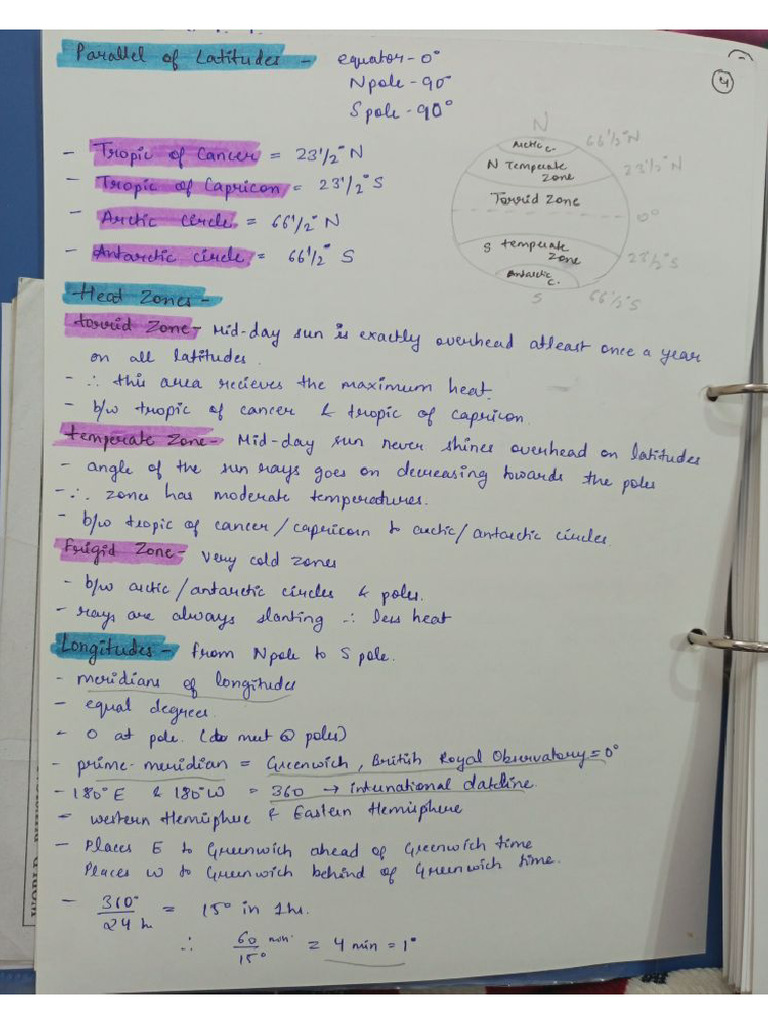 Parallel of Latitudes - equator - 0°
N pole - 90°
S pole - 90°
4
- Tropic of Cancer = 23 1/2° N
- Tropic of Capricon = 23 1/2° S
- Arctic circle = 66 1/2° N
- Antarctic circle = 66 1/2° S
N
Arctic c.
66 1/2° N
N Temperate
zone
23 1/2° N
Torrid Zone
0°
S temperate
zone
23 1/2° S
Antarctic
c.
S
66 1/2° S
Heat Zones -
torrid Zone - Mid-day sun is exactly overhead atleast once a year
on all latitudes.
- ∴ this area recieves the maximum heat.
- b/w tropic of cancer & tropic of capricon.
temperate Zone - Mid-day sun never shines overhead on latitudes
- angle of the sun rays goes on decreasing towards the poles
- ∴ zones has moderate temperatures.
- b/w tropic of cancer/capricorn to arctic/antarctic circles.
Frigid Zone - Very cold zones
- b/w arctic/antarctic circles & poles.
- rays are always slanting ∴ less heat
Longitudes - from N pole to S pole.
- meridians of longitudes
- equal degrees.
- 0 at pole. (do meet @ poles)
- prime-meridian = Greenwich, British Royal Observatory = 0°
- 180° E & 180° W = 360 → international dateline.
= western Hemisphere & Eastern Hemisphere
- Places E to Greenwich ahead of Greenwich time
Places W to Greenwich behind of Greenwich time.
- 360°/24 h = 15° in 1hr.
∴ 60 min/15° = 4 min = 1°